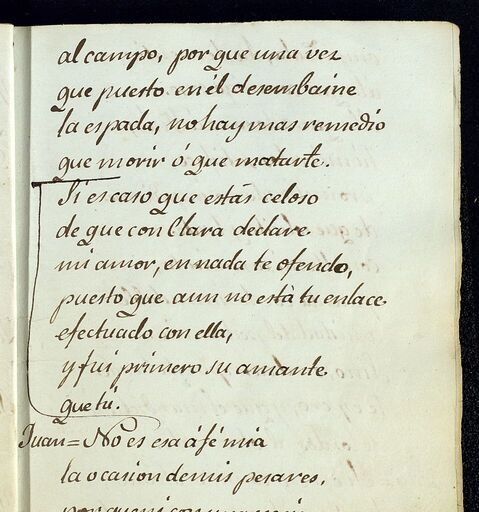 al campo, por que una vez
que puesto en él desembaine
la espada, no hay mas remedio
que morir ó que matarte.
Si es caso que estás celoso
de que con Clara declare
mi amor, en nada te ofendo,
puesto que aun no está tu enlace
efectuado con ella,
y fui primero su amante
que tú.
Juan = No es esa á fé mia
la ocasion de mis pesares,